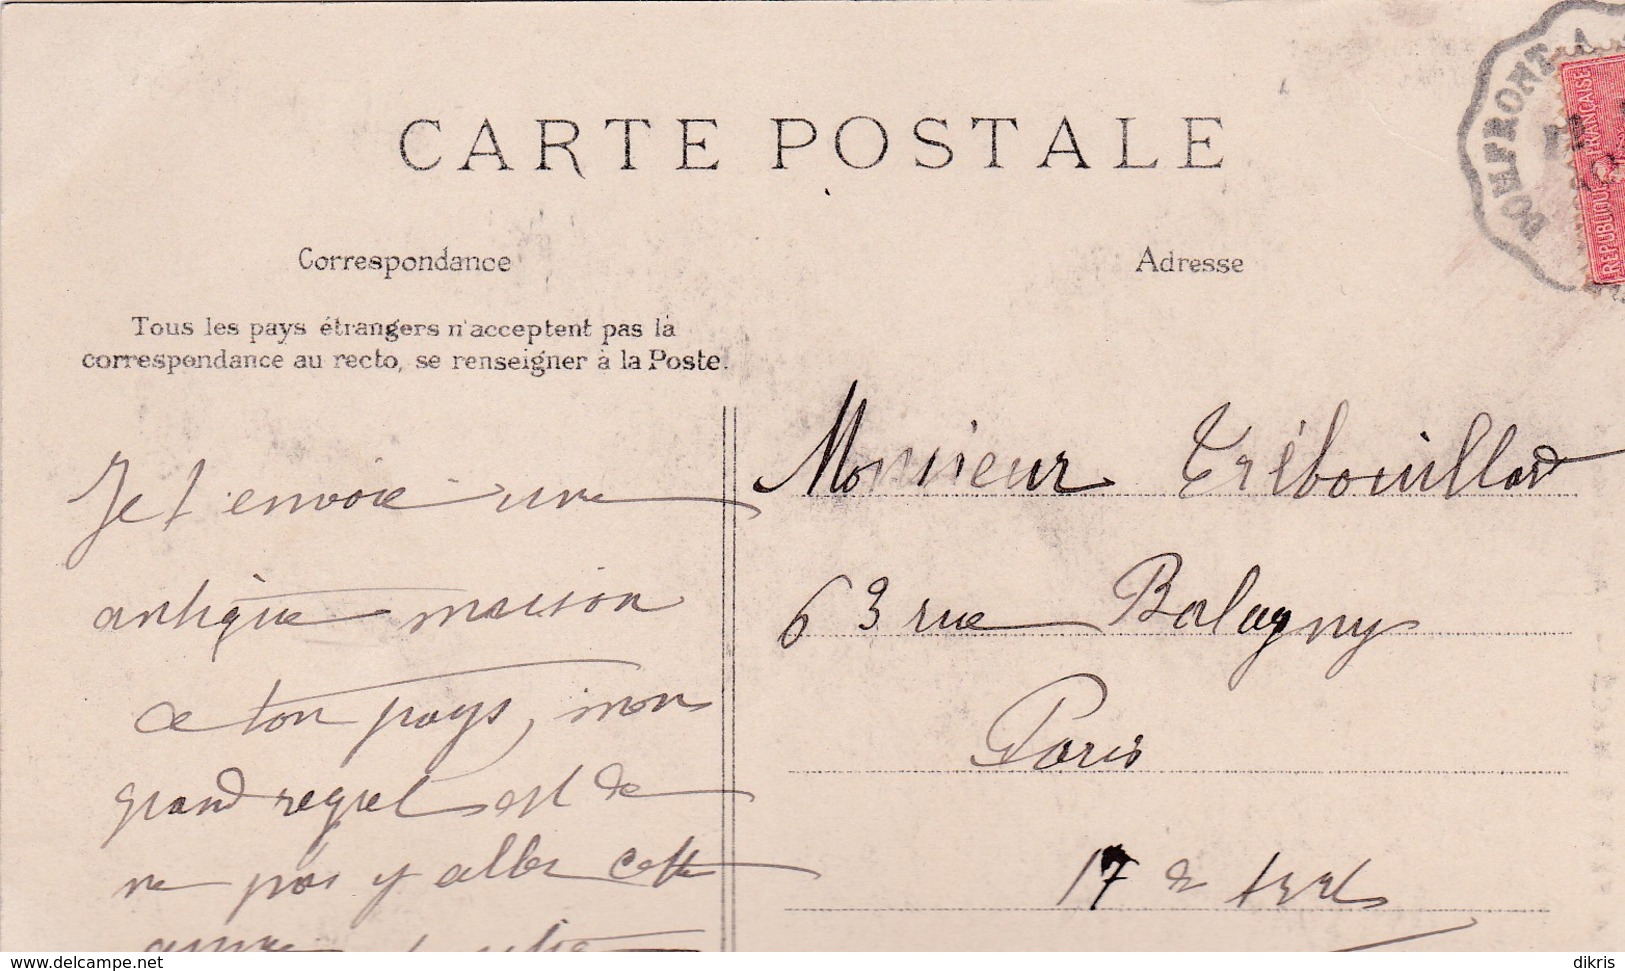 CARTE POSTALE
DOMFRONT A
REPUBLIQUE FRANÇAISE
Correspondance
Adresse
Tous les pays étrangers n'acceptent pas la
correspondance au recto, se renseigner à la Poste.
Je t'envoie une
antique maison
de ton pays, mon
grand regret est de
ne pas y aller cette
Monsieur Trébouillard
63 rue Balagny
Paris
17
www.delcampe.net
dikris